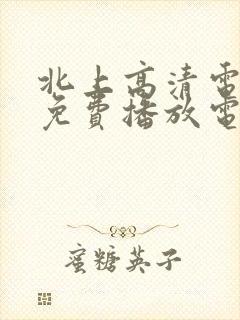 北上高清電
免費播放電
蜜糖英子